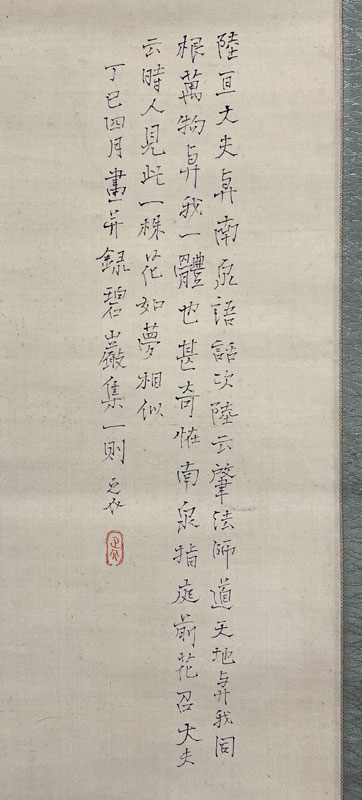 陸亘大夫與南泉語話次陸云肇法師道天地與我同
根萬物與我一體也甚奇恠南泉指庭前花召大夫
云時人見此一株花如夢相似
丁巳四月畫并録碧巖集一則